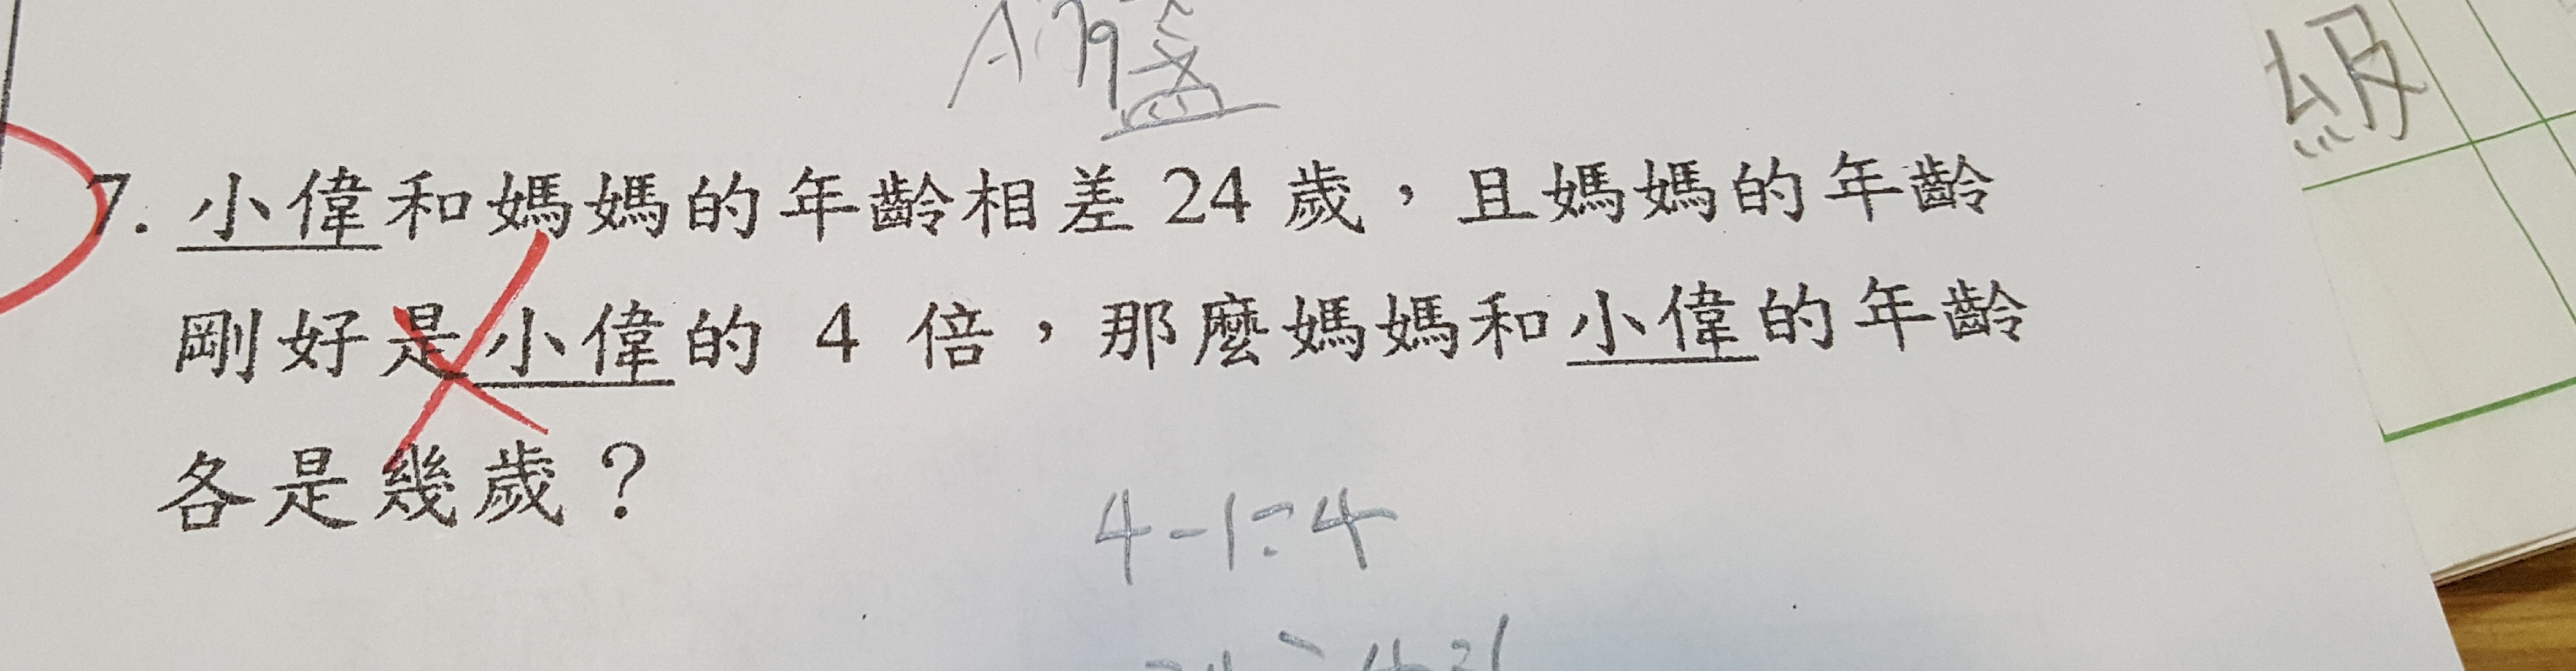 A:79盞
級
7. 小偉和媽媽的年齡相差 24 歲，且媽媽的年齡
剛好是小偉的 4 倍，那麼媽媽和小偉的年齡
各是幾歲？
4-1=4